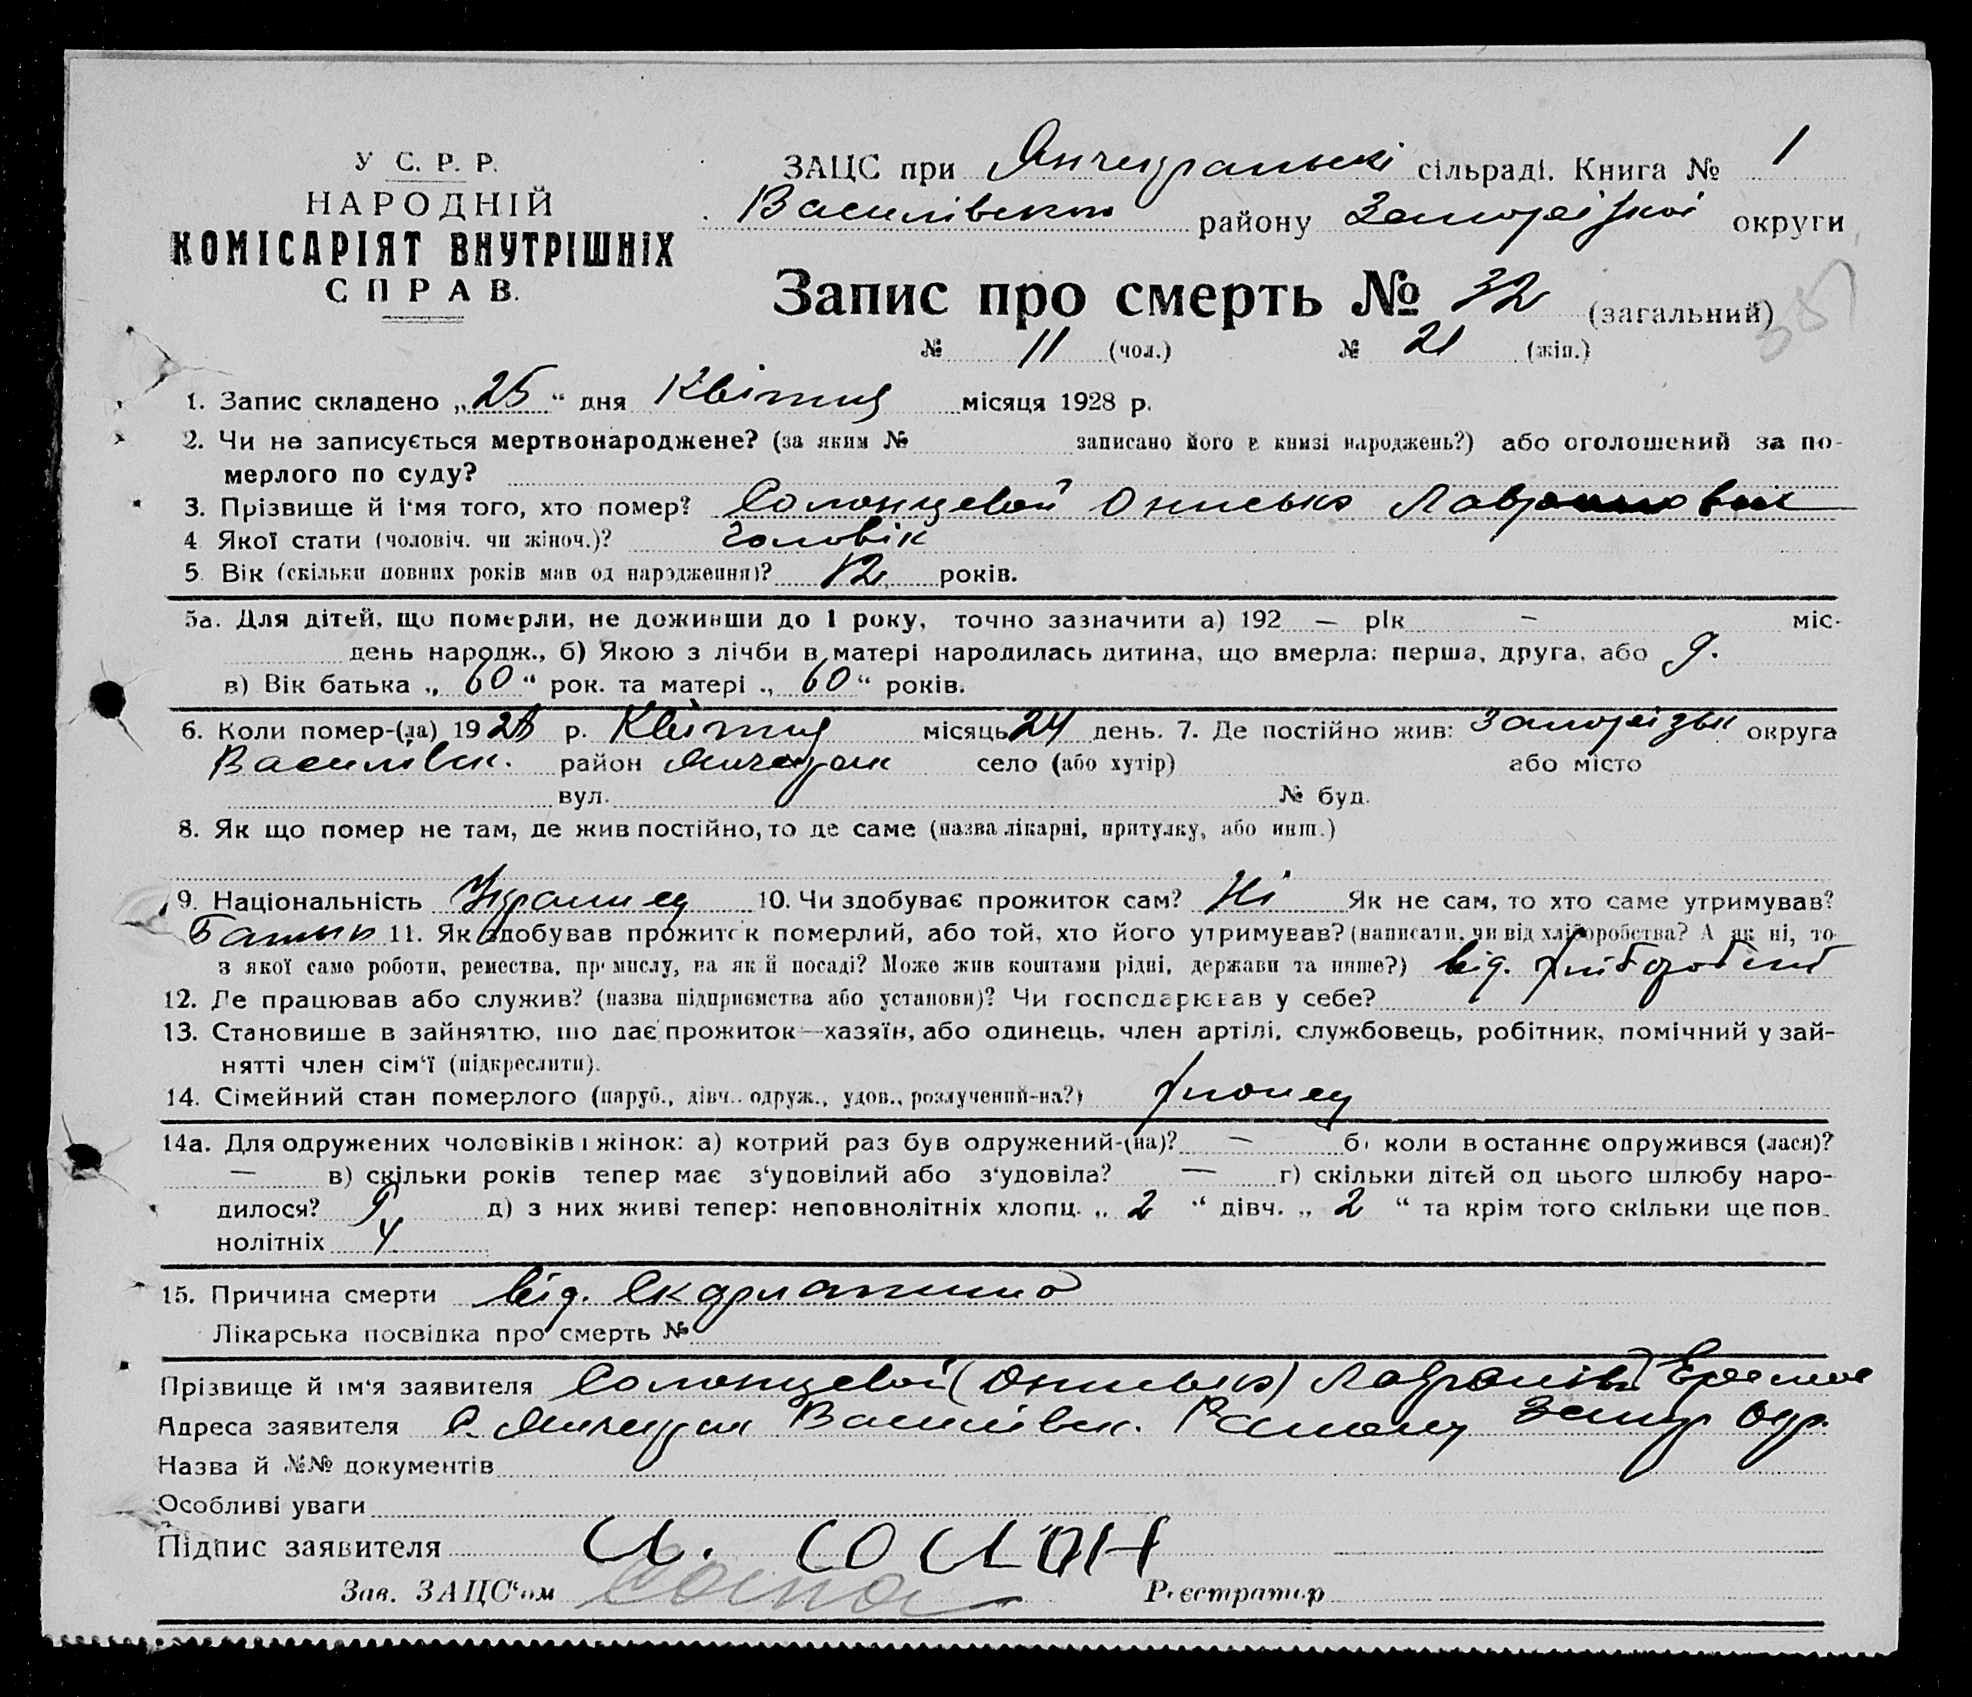 У С. Р. Р.
НАРОДНІЙ
КОМІСАРІЯТ ВНУТРІШНІХ
СПРАВ.
ЗАЦС при Янчекранській сільраді. Книга № 1
Василівського району Запорізької округи
Запис про смерть № 32 (загальний)
№ 11 (чол.) № 21 (жін.)
1. Запис складено „25“ дня Квітня місяця 1928 р.
2. Чи не записується мертвонароджене? (за яким № записано його в книзі народжень?) або оголошений за по-
мерлого по суду?
3. Прізвище й ім'я того, хто помер? Солонцевой Онисько
4 Якої стати (чоловіч. чи жіноч.)? Чоловік
5. Вік (скільки повних років мав од народження)? 12 років.
5а. Для дітей, що померли, не доживши до 1 року, точно зазначити а) 192 — рік — міс-
день народж., б) Якою з лічби в матері народилась дитина, що вмерла: перша, друга, або 9.
в) Вік батька „60“ рок. та матері „60“ років.
6. Коли помер-(ла) 1928 р. Квітня місяць 24 день. 7. Де постійно жив: Запорізьк округа
Василівск. район Янчекрак село (або хутір) або місто
вул. № буд.
8. Як що помер не там, де жив постійно, то де саме (назва лікарні, притулку, або инш.)
9. Національність Українец 10. Чи здобуває прожиток сам? Ні Як не сам, то хто саме утримував?
Батько 11. Як здобував прожиток померлий, або той, хто його утримував? (написати, чи від хліборобства? А як ні, то
з якої само роботи, ремества, промислу, на якій посаді? Може жив коштами рідні, держави та инше?) від. хліборобств
12. Де працював або служив? (назва підприємства або установи)? Чи господарював у себе?
13. Становище в зайняттю, що дає прожиток—хазяїн, або одинець, член артілі, службовець, робітник, помічний у зай-
нятті член сім'ї (підкреслити).
14. Сімейний стан померлого (паруб., дівч.. одруж., удов., розлучений-на?) хлопец
14а. Для одружених чоловіків і жінок: а) котрий раз був одружений-(на)? — б) коли в останнє одружився (лася)?
— в) скільки років тепер має з'удовілий або з'удовіла? — г) скільки дітей од цього шлюбу наро-
дилося? 9 д) з них живі тепер: неповнолітніх хлопц. „2“ дівч. „2“ та крім того скільки ще пов-
нолітніх 4
15. Причина смерти від. Скарлатини
Лікарська посвідка про смерть №
Прізвище й ім'я заявителя Солонцевой (Онисько)
Адреса заявителя с. Янчекрак Василівск. Району Запор Окр.
Назва й №№ документів
Особливі уваги
Підпис заявителя
Зав. ЗАЦС'ом Реєстратор